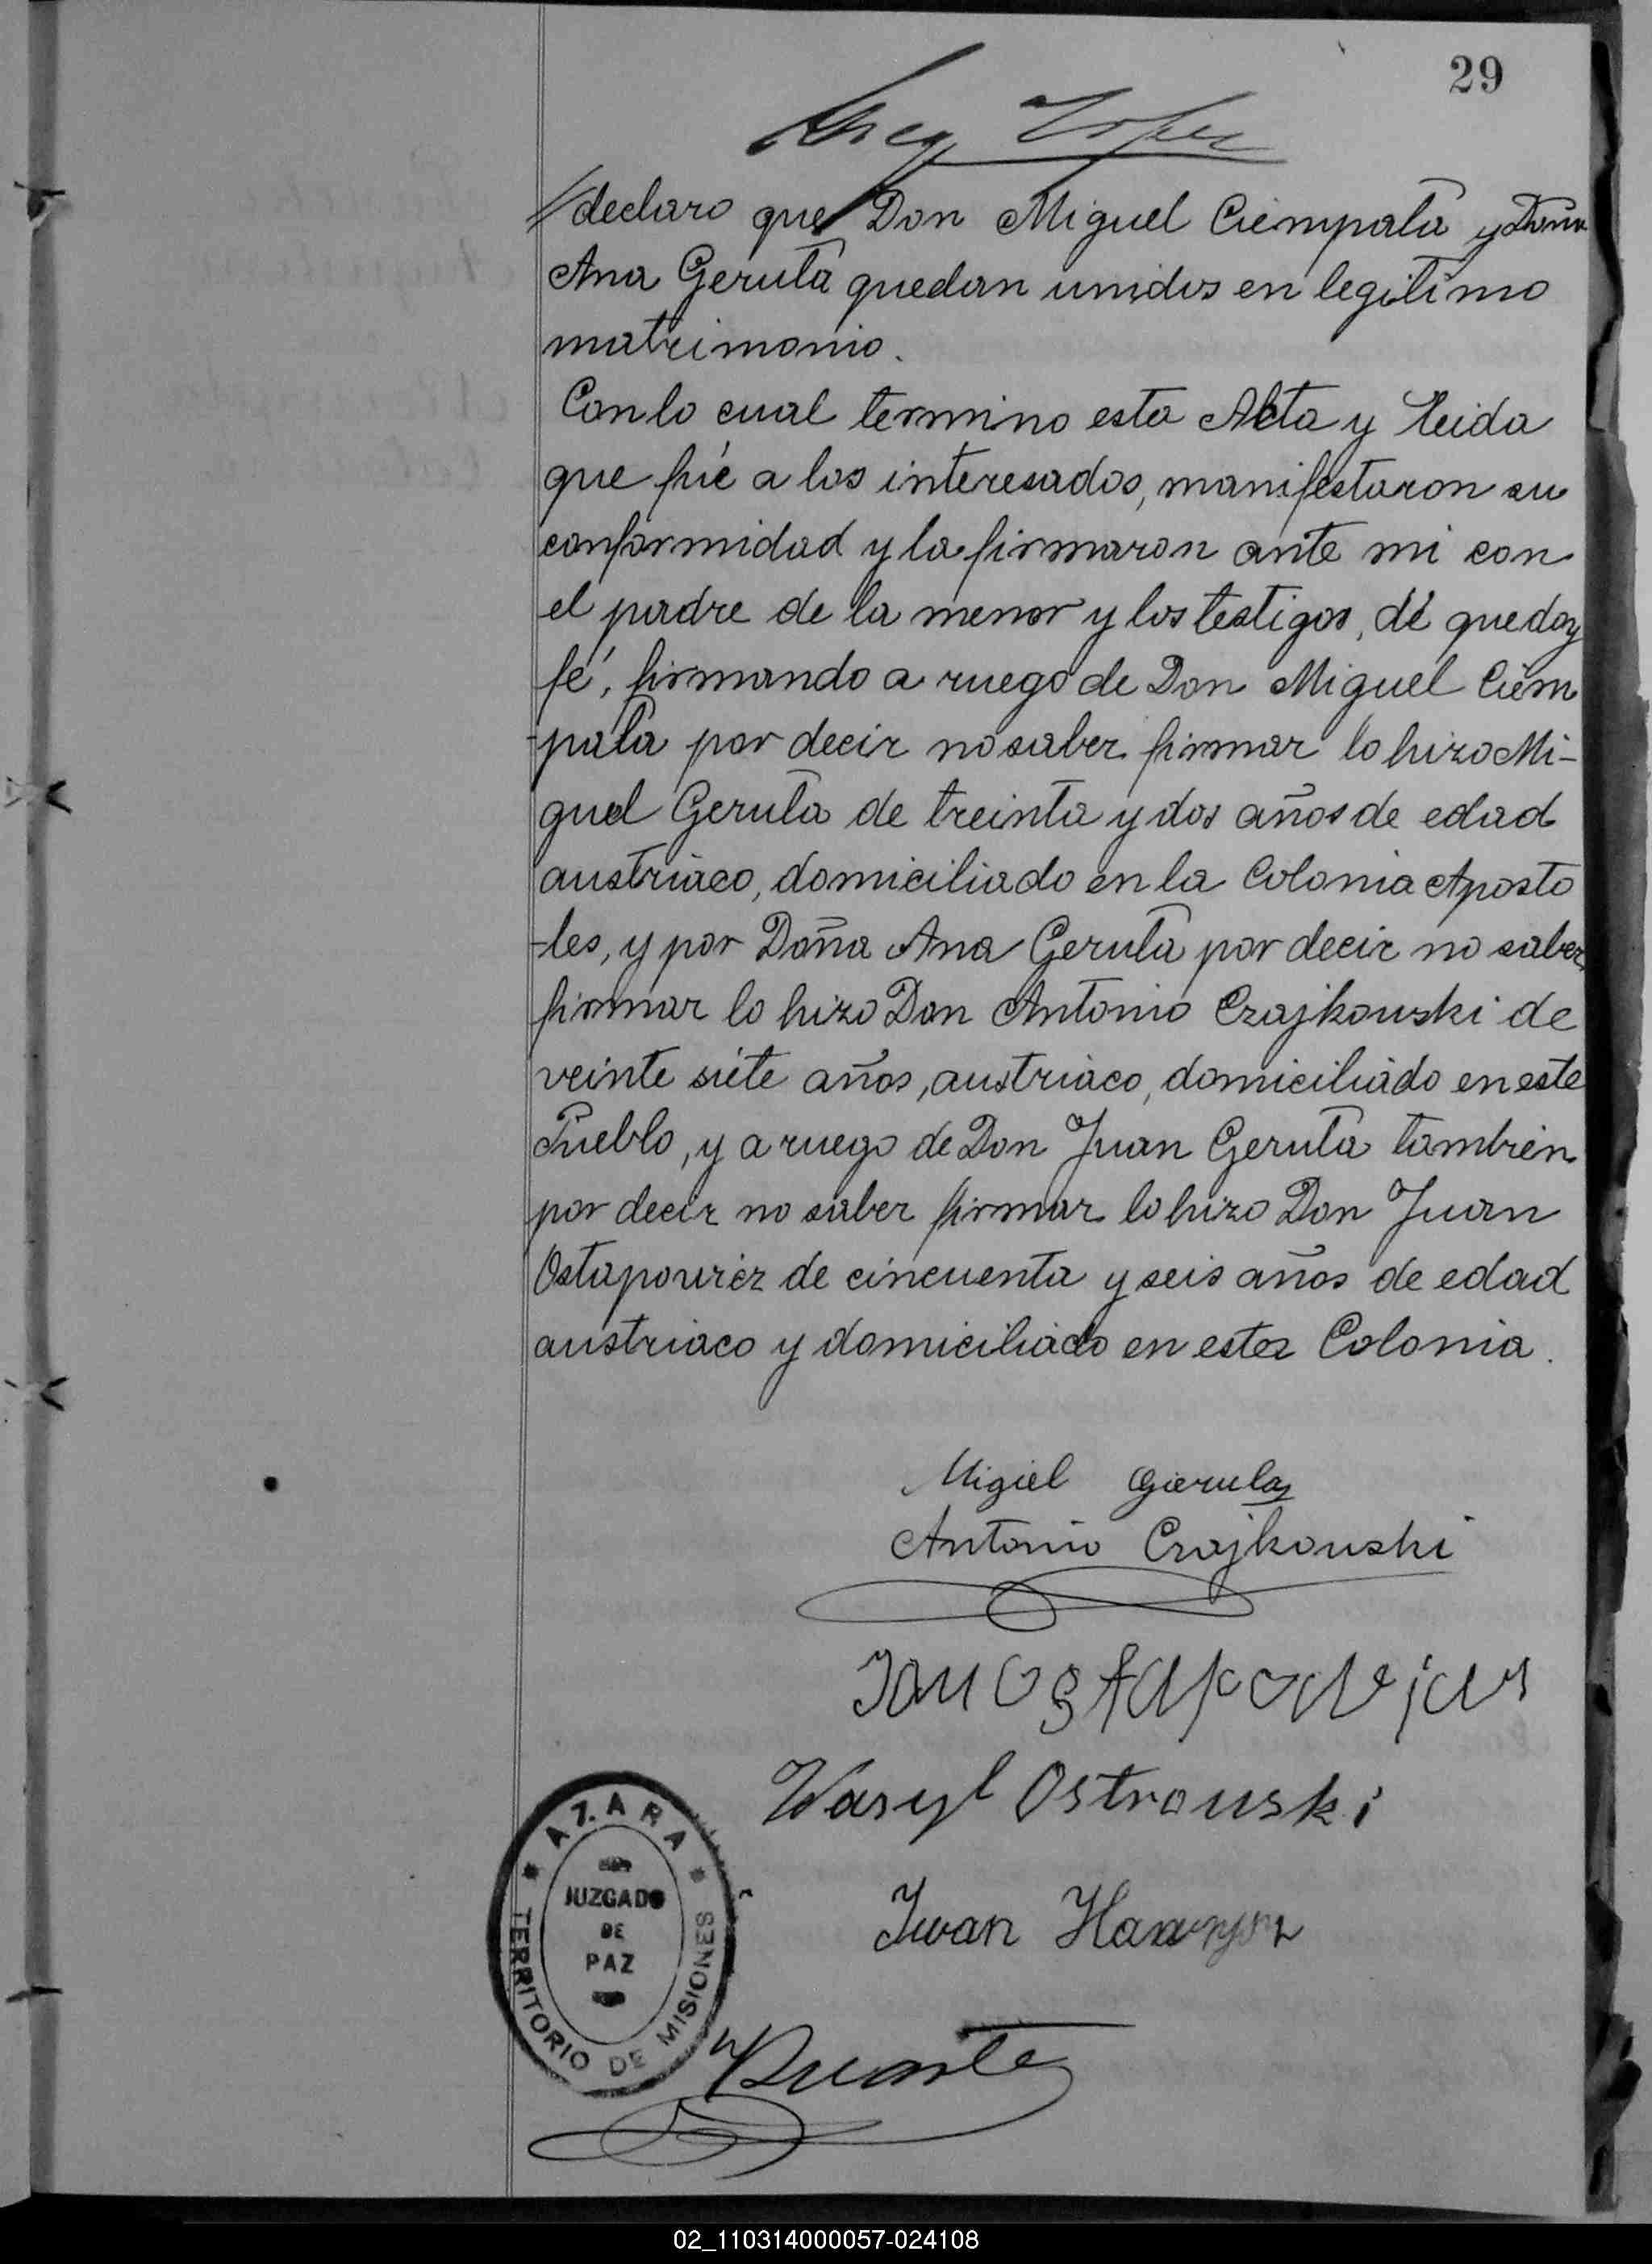 29
//declaro que Don Miguel Ciempala y Doña
Ana Gerula quedan unidos en legitimo
matrimonio.
Con lo cual termino esta Acta y leida
que fué a los interesados, manifestaron su
conformidad y la firmaron ante mi con
el padre de la menor y los testigos, de que doy
fé, firmando a ruego de Don Miguel Ciem
-pala por decir no saber firmar lo hizo Mi-
guel Gerula de treinta y dos años de edad
austriaco, domiciliado en la Colonia Aposto
-les, y por Doña Ana Gerula por decir no saber
firmar lo hizo Don Antonio Czajkowski de
veinte siete años, austriaco, domiciliado en este
Pueblo, y a ruego de Don Juan Gerula tambien
por decir no saber firmar lo hizo Don Juan
Ostapowicz de cincuenta y seis años de edad
austriaco y domiciliado en esta Colonia.
Migiel Gierula
Antonio Czajkowski
Jan Ostapowicz
Wasyl Ostrowski
Iwan
* AZARA *
JUZGADO
DE
PAZ
TERRITORIO DE MISIONES
02_110314000057-024108